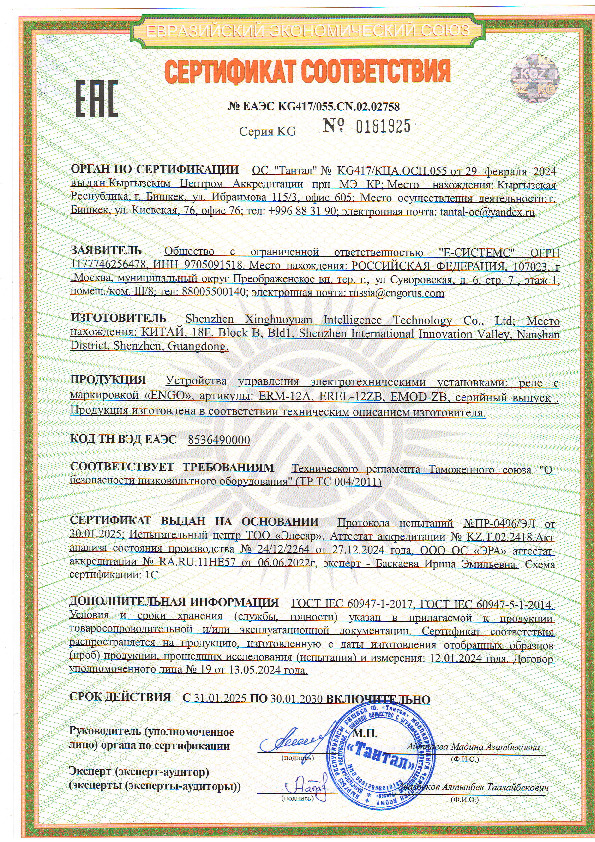 ЕВРАЗИЙСКИЙ ЭКОНОМИЧЕСКИЙ СОЮЗ
СЕРТИФИКАТ СООТВЕТСТВИЯ
EAC
№ ЕАЭС KG417/055.CN.02.02758
Серия KG № 0161925
ОРГАН ПО СЕРТИФИКАЦИИ ОС "Тантал" № KG417/КЦА.ОСП.055 от 29 февраля 2024
выдан Кыргызским Центром Аккредитации при МЭ КР; Место нахождения: Кыргызская
Республика, г. Бишкек, ул. Ибраимова 115/3, офис 605; Место осуществления деятельности: г.
Бишкек, ул. Киевская, 76, офис 76; тел: +996 88 31 90; электронная почта: tantal-oc@yandex.ru
ЗАЯВИТЕЛЬ Общество с ограниченной ответственностью "Е-СИСТЕМС" ОГРН
1177746256478, ИНН 9705091518, Место нахождения: РОССИЙСКАЯ ФЕДЕРАЦИЯ, 107023, г
.Москва, муниципальный округ Преображенское вн. тер. г., ул Суворовская, д. 6, стр. 7 , этаж 1,
помещ./ком. III/8; тел: 88005500140; электронная почта: russia@engorus.com
ИЗГОТОВИТЕЛЬ Shenzhen Xinghuoyuan Intelligence Technology Co., Ltd; Место
нахождения: КИТАЙ, 18F, Block B, Bld1, Shenzhen International Innovation Valley, Nanshan
District, Shenzhen, Guangdong.
ПРОДУКЦИЯ Устройства управления электротехническими установками: реле с
маркировкой «ENGO», артикулы: ERM-12A, EREL-12ZB, EMOD ZB, серийный выпуск .
Продукция изготовлена в соответствии техническим описанием изготовителя.
КОД ТН ВЭД ЕАЭС 8536490000
СООТВЕТСТВУЕТ ТРЕБОВАНИЯМ Технического регламента Таможенного союза "О
безопасности низковольтного оборудования" (ТР ТС 004/2011)
СЕРТИФИКАТ ВЫДАН НА ОСНОВАНИИ Протокола испытаний №ПР-0496/ЭЛ от
30.01.2025; Испытательный центр ТОО «Элесар», Аттестат аккредитации № KZ.T.02.2418.Акт
анализа состояния производства № 24/12/2264 от 27.12.2024 года, ООО ОС «ЭРА» аттестат
аккредитации № RA.RU.11НЕ57 от 06.06.2022г, эксперт - Баскаева Ирина Эмильевна. Схема
сертификации: 1С
ДОПОЛНИТЕЛЬНАЯ ИНФОРМАЦИЯ ГОСТ IEC 60947-1-2017, ГОСТ IEC 60947-5-1-2014.
Условия и сроки хранения (службы, годности) указан в прилагаемой к продукции
товаросопроводительной и/или эксплуатационной документации. Сертификат соответствия
распространяется на продукцию, изготовленную с даты изготовления отобранных образцов
(проб) продукции, прошедших исследования (испытания) и измерения: 12.01.2024 года. Договор
уполномоченного лица № 19 от 13.05.2024 года.
СРОК ДЕЙСТВИЯ С 31.01.2025 ПО 30.01.2030 ВКЛЮЧИТЕЛЬНО
Руководитель (уполномоченное М.П.
лицо) органа по сертификации Мадина Азатбековна
(подпись) (Ф.И.О.)
«Тантал»
Эксперт (эксперт-аудитор)
(эксперты (эксперты-аудиторы)) Алтынбек Таалайбекович
(подпись) (Ф.И.О.)